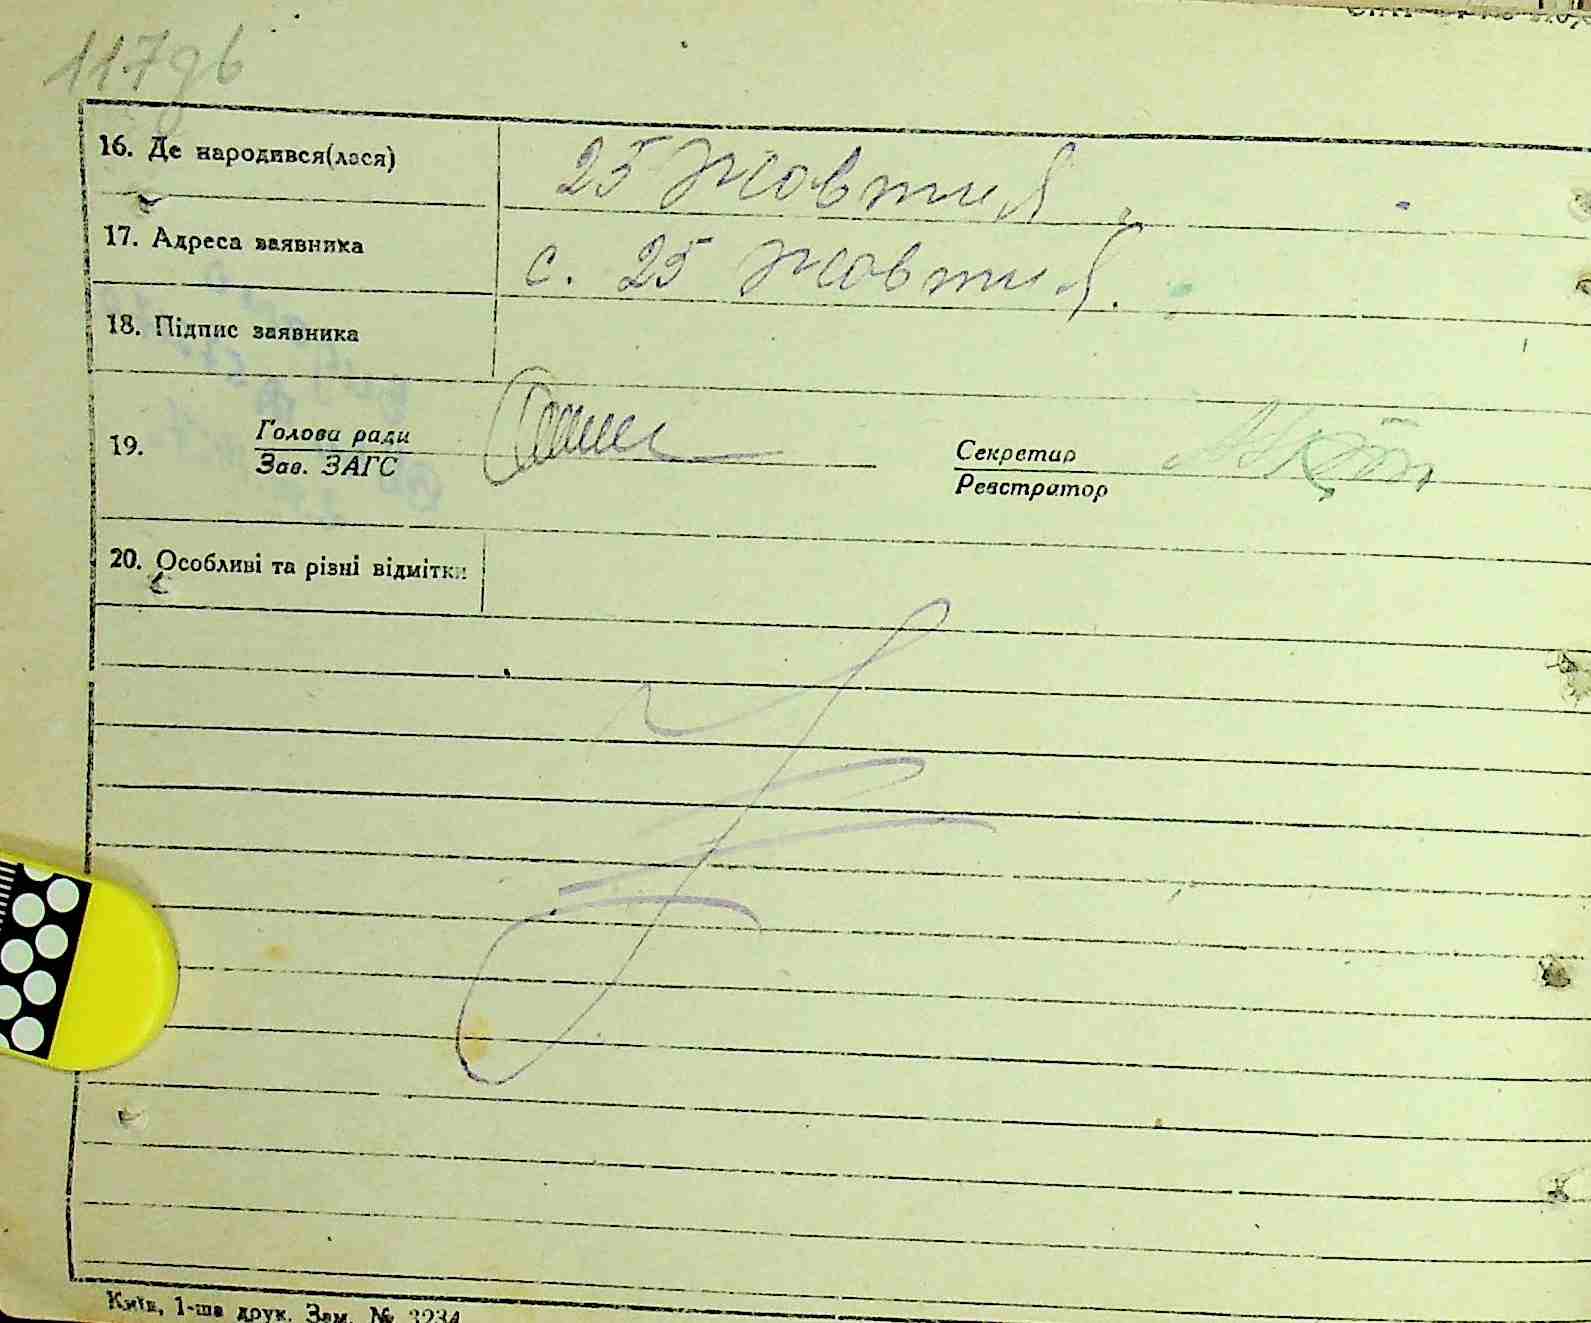 117 зв
16. Де народився(лася) 25 Жовтня
17. Адреса заявника с. 25 Жовтня.
18. Підпис заявника
19. Голова ради
Зав. ЗАГС
Секретар
Реєстратор
20. Особливі та різні відмітки
Київ, 1-ша друк. Зам. № 3234